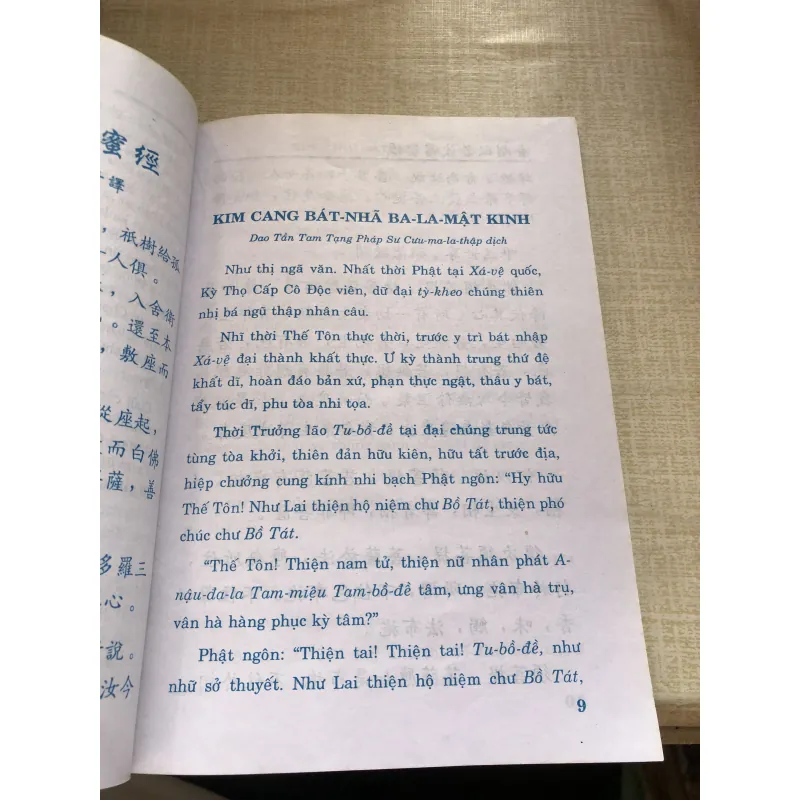 蜜經
譯
，祇樹給孤
人俱。
，入舍衛
。還至本
，敷座而
從座起，
而白佛
薩，善
多羅三
心。
說。
汝今
KIM CANG BÁT-NHÃ BA-LA-MẬT KINH
Dao Tần Tam Tạng Pháp Sư Cưu-ma-la-thập dịch
Như thị ngã văn. Nhất thời Phật tại Xá-vệ quốc,
Kỳ Thọ Cấp Cô Độc viên, dữ đại tỳ-kheo chúng thiên
nhị bá ngũ thập nhân câu.
Nhĩ thời Thế Tôn thực thời, trước y trì bát nhập
Xá-vệ đại thành khất thực. Ư kỳ thành trung thứ đệ
khất dĩ, hoàn đáo bản xứ, phạn thực ngật, thâu y bát,
tẩy túc dĩ, phu tòa nhi tọa.
Thời Trưởng lão Tu-bồ-đề tại đại chúng trung tức
tùng tòa khởi, thiên đản hữu kiên, hữu tất trước địa,
hiệp chưởng cung kính nhi bạch Phật ngôn: “Hy hữu
Thế Tôn! Như Lai thiện hộ niệm chư Bồ Tát, thiện phó
chúc chư Bồ Tát.
“Thế Tôn! Thiện nam tử, thiện nữ nhân phát A-
nậu-đa-la Tam-miệu Tam-bồ-đề tâm, ưng vân hà trụ,
vân hà hàng phục kỳ tâm?”
Phật ngôn: “Thiện tai! Thiện tai! Tu-bồ-đề, như
nhữ sở thuyết. Như Lai thiện hộ niệm chư Bồ Tát,
9